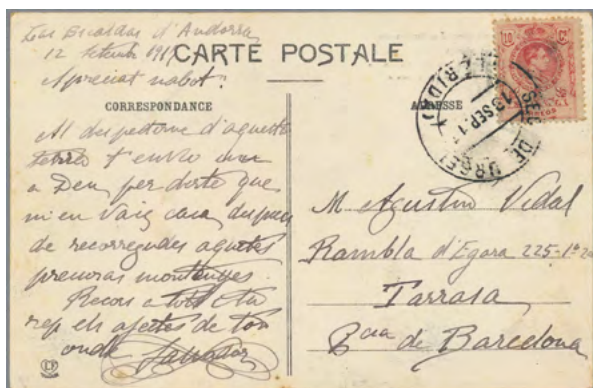 Las Escaldas d'Andorra
12 Setembre 191
Apreciat nabot:
CARTE POSTALE
CORRESPONDANCE
ADRESSE
Al despedirme d'aquesta
terra t'envio un
a Deu, per dirte que
m'en vaig casa, despues
de recorregudes aquestes
montanyes.
Recors a tots i tu
rep els afectes de ton
oncle Salvador
10 Cs
CORREOS
SEO DE URGEL
(LERIDA)
13 SEP. 1
M Agustin Vidal
Rambla d'Egara 225-1º
Tarrasa
Bcna de Barcelona